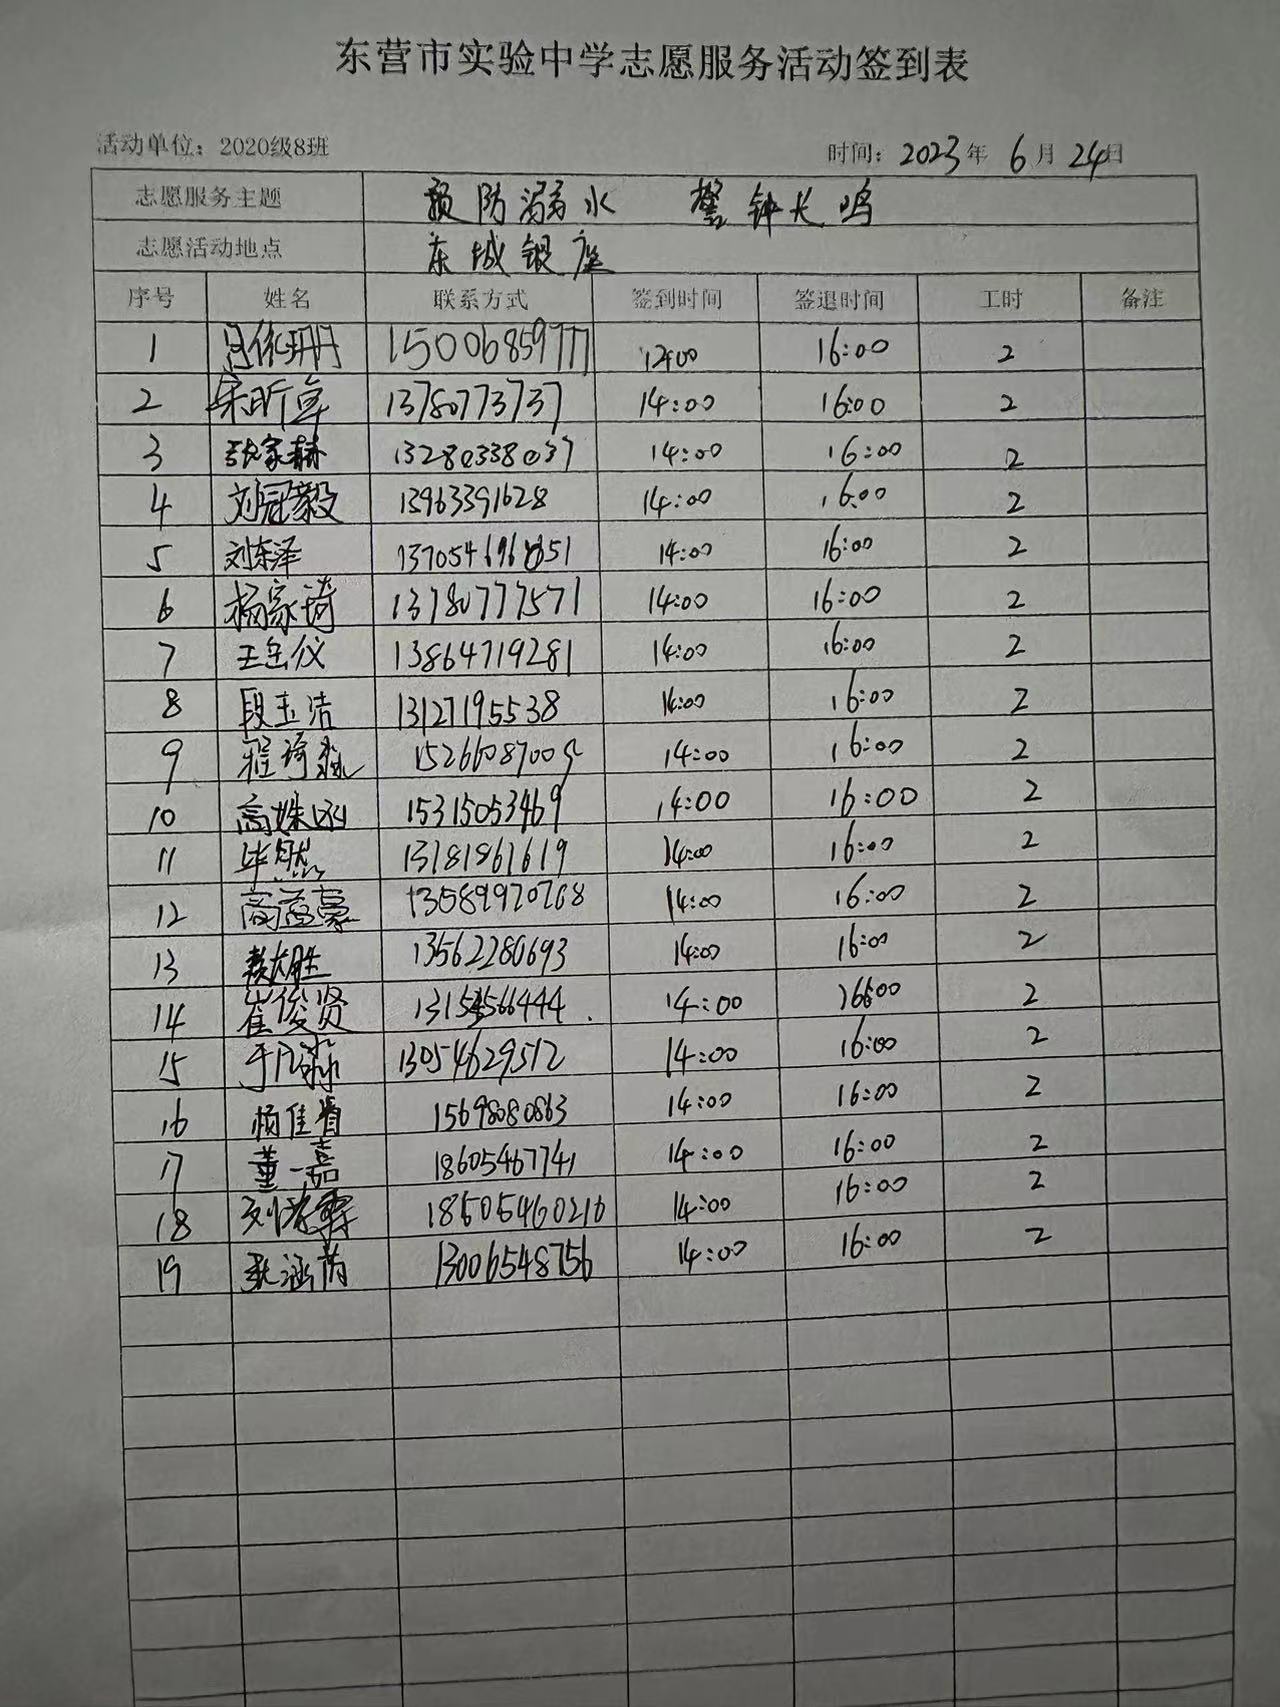 东营市实验中学志愿服务活动签到表
活动单位：2020级8班 时间：2023年 6月 24日
志愿服务主题 预防溺水 警钟长鸣
志愿活动地点 东城银座
序号 姓名 联系方式 签到时间 签退时间 工时 备注
1 15006859777 16:00 2
2 宋昕卓 13780773737 14:00 16:00 2
3 张家赫 13280338037 14:00 16:00 2
4 刘冠毅 13963391628 14:00 16:00 2
5 刘东泽 14:00 16:00 2
6 杨家琦 13780777571 14:00 16:00 2
7 王岳仪 13864719281 14:00 16:00 2
8 段玉洁 13127195538 14:00 16:00 2
9 程琦淼 15266087009 14:00 16:00 2
10 高姝 15315053469 14:00 16:00 2
11 毕然 13181961619 14:00 16:00 2
12 高益豪 13589970768 14:00 16:00 2
13 13562280693 14:00 16:00 2
14 崔俊贤 14:00 16:00 2
15 于凡淼 13054629512 14:00 16:00 2
16 杨佳 15698080863 14:00 16:00 2
17 董一嘉 18605467741 14:00 16:00 2
18 刘 18505460216 14:00 16:00 2
19 涵茜 13006548756 14:00 16:00 2